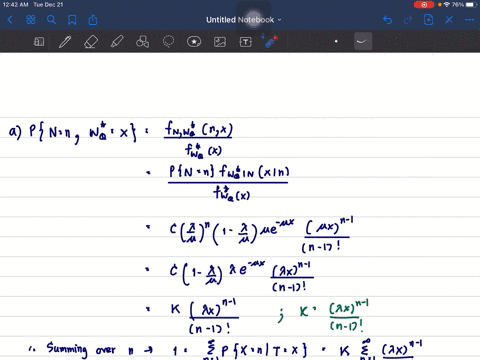 12:42 AM Tue Dec 21
76%
Untitled Notebook
a) P{N=n, W_Q^* = x} = f_{N,W_Q^*}(n,x) / f_{W_Q^*}(x)
= P{N=n} f_{W_Q^*|N}(x|n) / f_{W_Q^*}(x)
= C (λ/μ)^n (1 - λ/μ) μe^{-μx} (μx)^{n-1} / (n-1)!
= C (1 - λ/μ) λe^{-μx} (λx)^{n-1} / (n-1)!
= K (λx)^{n-1} / (n-1)! ; K = (λx)^{n-1} / (n-1)!
∴ Summing over n → 1 = Σ_{n=1}^∞ P{X=n|T=X} = K Σ_{n=1}^∞ (λx)^{n-1}